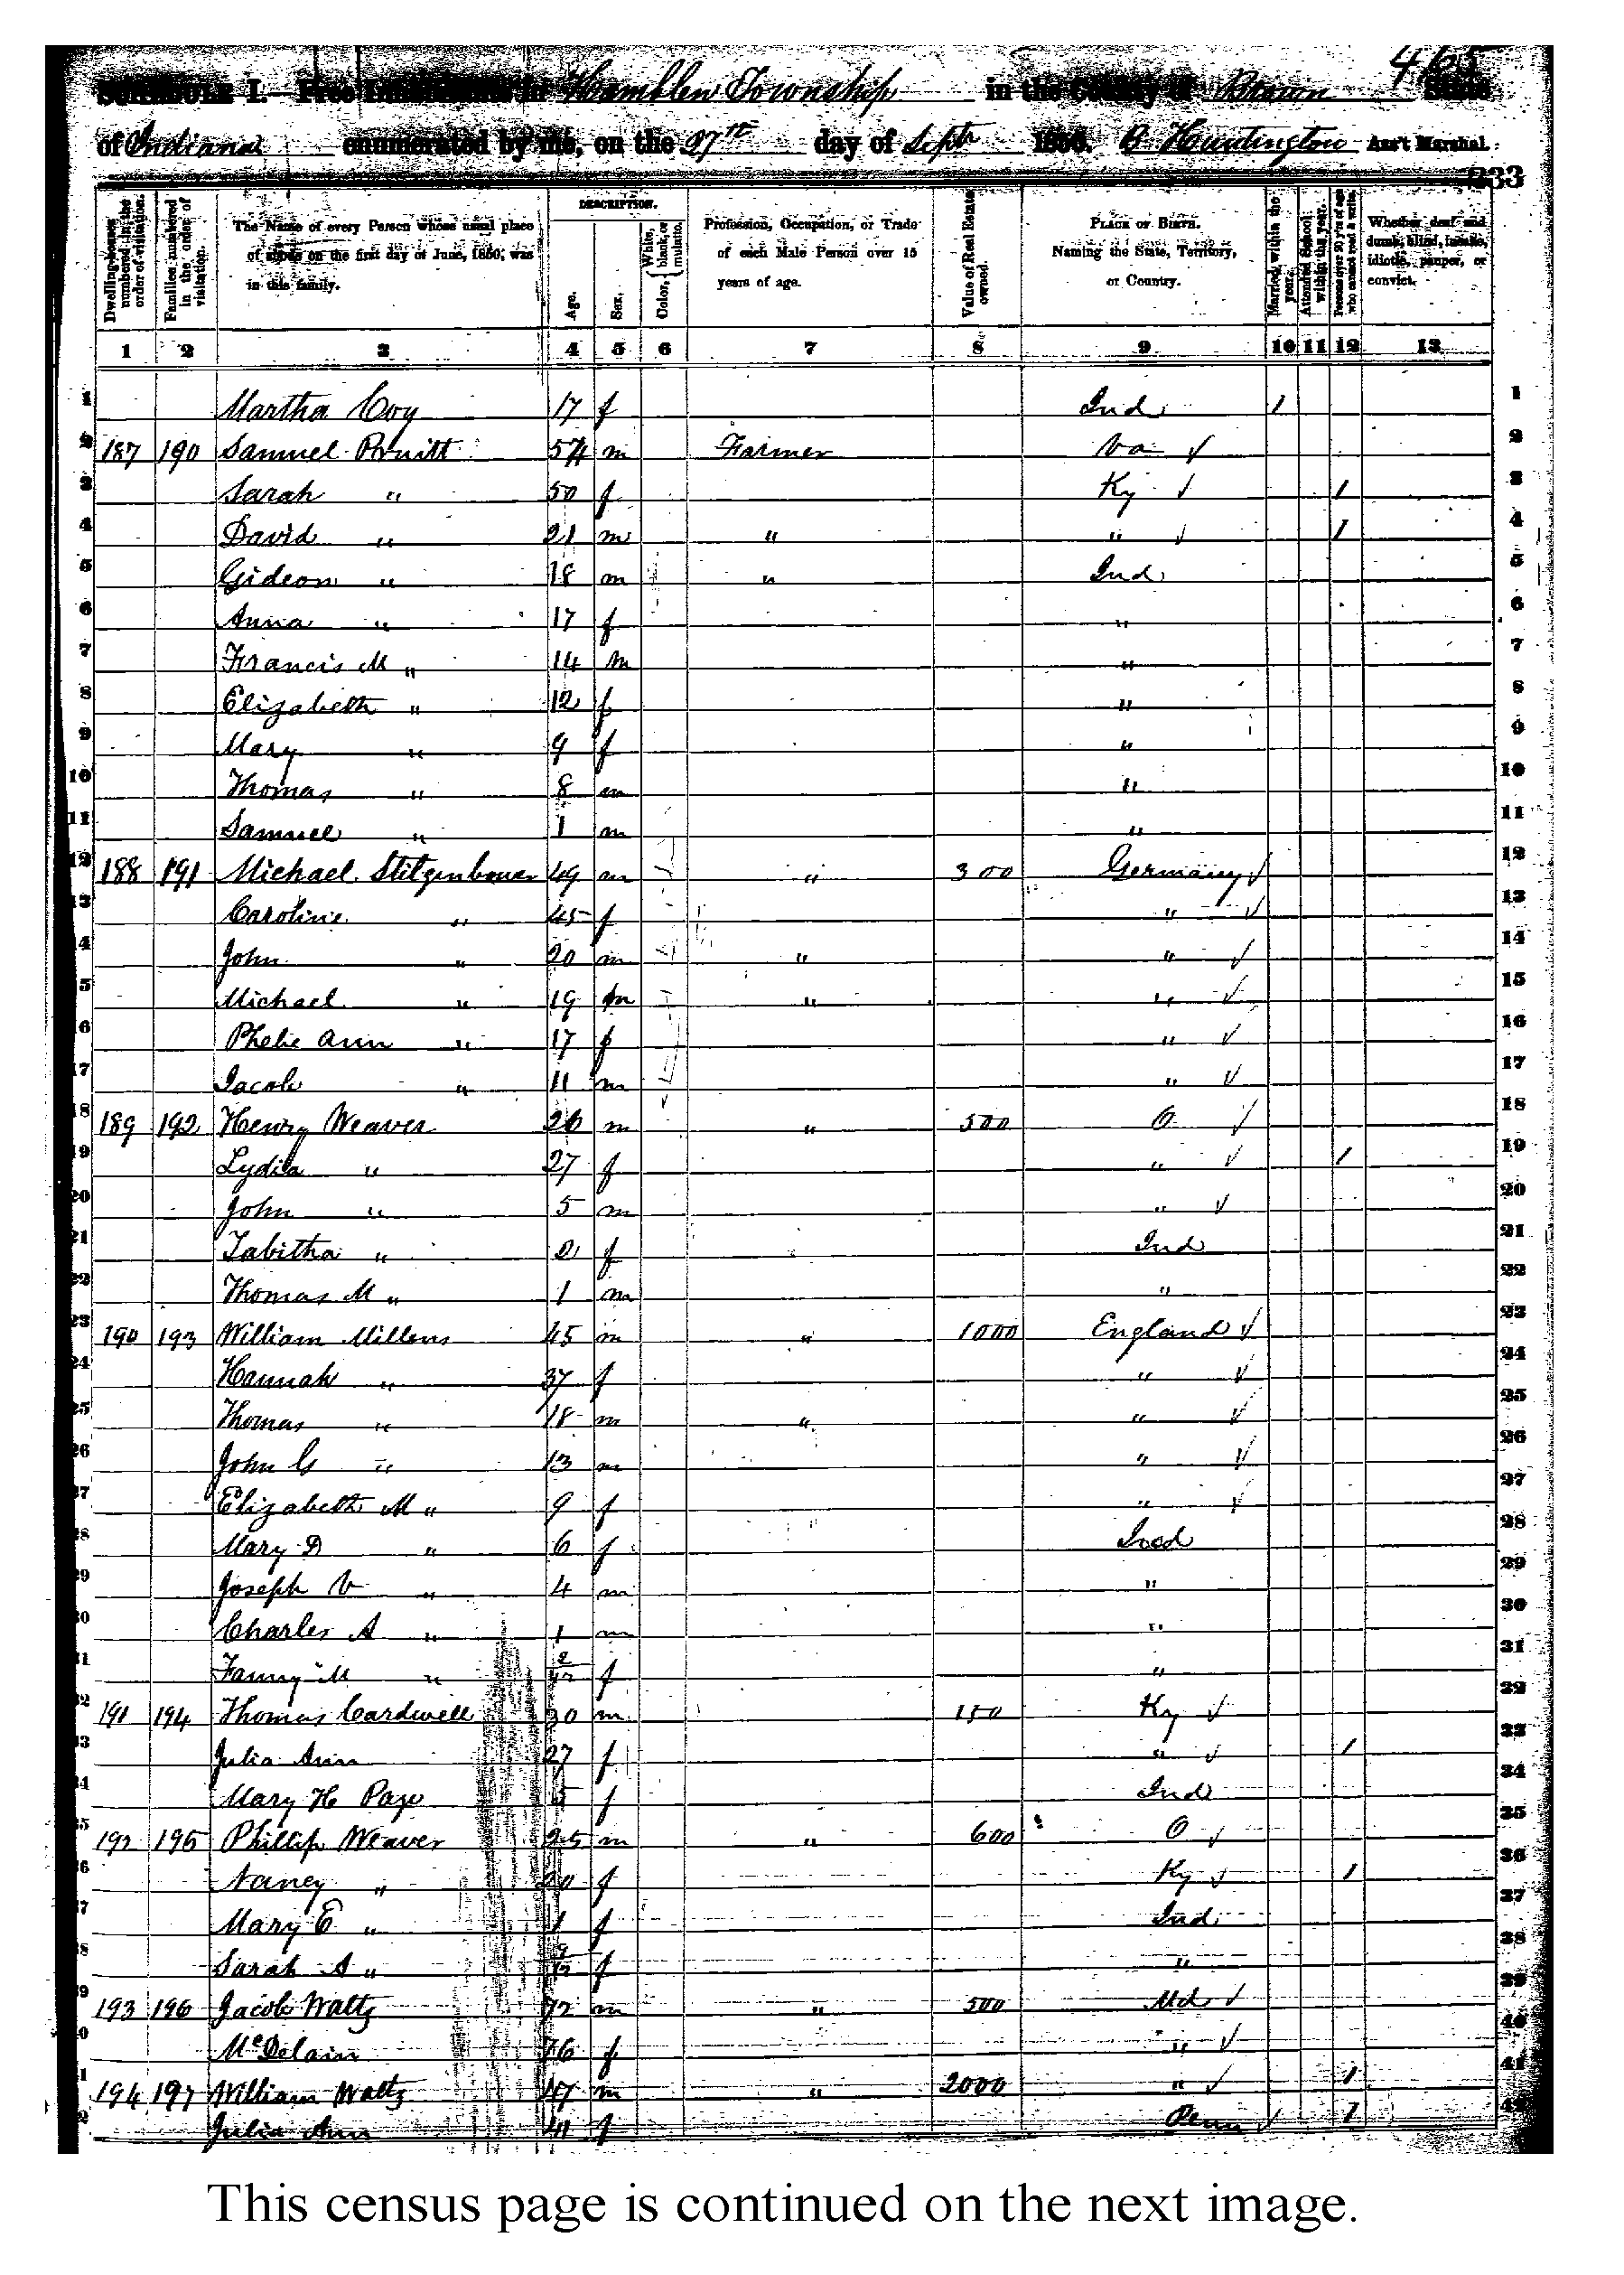 465
SCHEDULE I.—Free Inhabitants in Hamblen Township in the County of Brown State
of Indiana enumerated by me, on the 27th day of Sept 1850. B Huntington Ass't Marshal.
833
Dwelling-houses numbered in the order of visitation. Families numbered in the order of visitation. The Name of every Person whose usual place of abode on the first day of June, 1850, was in this family. DESCRIPTION. Age. Sex. Color, { White, black, or mulatto. Profession, Occupation, or Trade of each Male Person over 15 years of age. Value of Real Estate owned. PLACE OF BIRTH. Naming the State, Territory, or Country. Married within the year. Attended School within the year. Persons over 20 y'rs of age who cannot read & write. Whether deaf and dumb, blind, insane, idiotic, pauper, or convict.
1 2 3 4 5 6 7 8 9 10 11 12 13
1 Martha Coy 17 f Ind 1 1
2 187 190 Samuel Pruitt 54 m Farmer Va ✓ 2
3 Sarah " 50 f Ky ✓ 1 3
4 David " 21 m " " ✓ 1 4
5 Gideon " 18 m " Ind 5
6 Anna " 17 f " 6
7 Francis M " 14 m " 7
8 Elizabeth " 12 f " 8
9 Mary " 9 f " 9
10 Thomas " 8 m " 10
11 Samuel " 1 m " 11
12 188 191 Michael Stitzenbouer 49 m " 300 Germany ✓ 12
13 Caroline " 45 f " ✓ 13
14 John " 20 m " " ✓ 14
15 Michael " 19 m " " ✓ 15
16 Phebe Ann " 17 f " ✓ 16
17 Jacob " 11 m " ✓ 17
18 189 192 Henry Weaver 26 m " 500 O ✓ 18
19 Lydia " 27 f " ✓ 1 19
20 John " 5 m " ✓ 20
21 Tabitha " 2 f Ind 21
22 Thomas M " 1 m " 22
23 190 193 William Millens 45 m " 1000 England ✓ 23
24 Hannah " 37 f " ✓ 24
25 Thomas " 18 m " " ✓ 25
26 John G " 13 m " ✓ 26
27 Elizabeth M " 9 f " ✓ 27
28 Mary D " 6 f Ind 28
29 Joseph V " 4 m " 29
30 Charles A " 1 m " 30
31 Fanny M " 2/12 f " 31
32 191 194 Thomas Cardwell 30 m 150 Ky ✓ 32
33 Julia Ann 27 f " ✓ 1 33
34 Mary H Page 5 f Ind 34
35 192 195 Phillip Weaver 25 m " 600 O ✓ 35
36 Nancy " 20 f Ky ✓ 1 36
37 Mary E " 1 f Ind 37
38 Sarah A " f " 38
39 193 196 Jacob Waltz 72 m " 500 Md ✓ 39
40 McDelain 76 f " ✓ 40
41 194 197 William Waltz 47 m " 2000 " ✓ 1 41
42 Julia Ann 41 f Penn ✓ 1 42
This census page is continued on the next image.